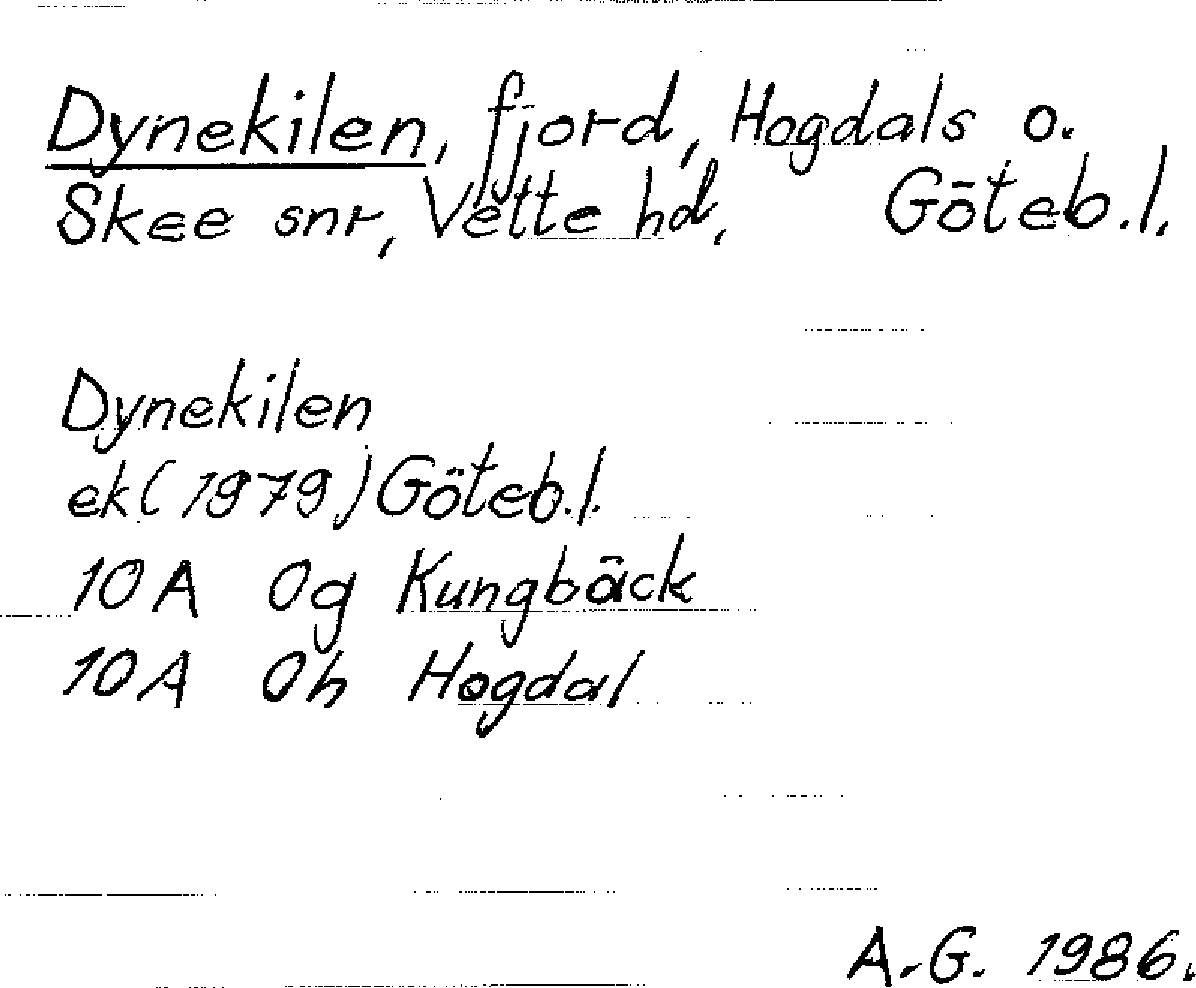 Dynekilen, fjord, Hogdals o.
Skee snr, Vette hd, Göteb.l.
Dynekilen
ek(1979)Göteb.l.
10A 0g Kungbäck
10A 0h Hogdal
A.G. 1986.